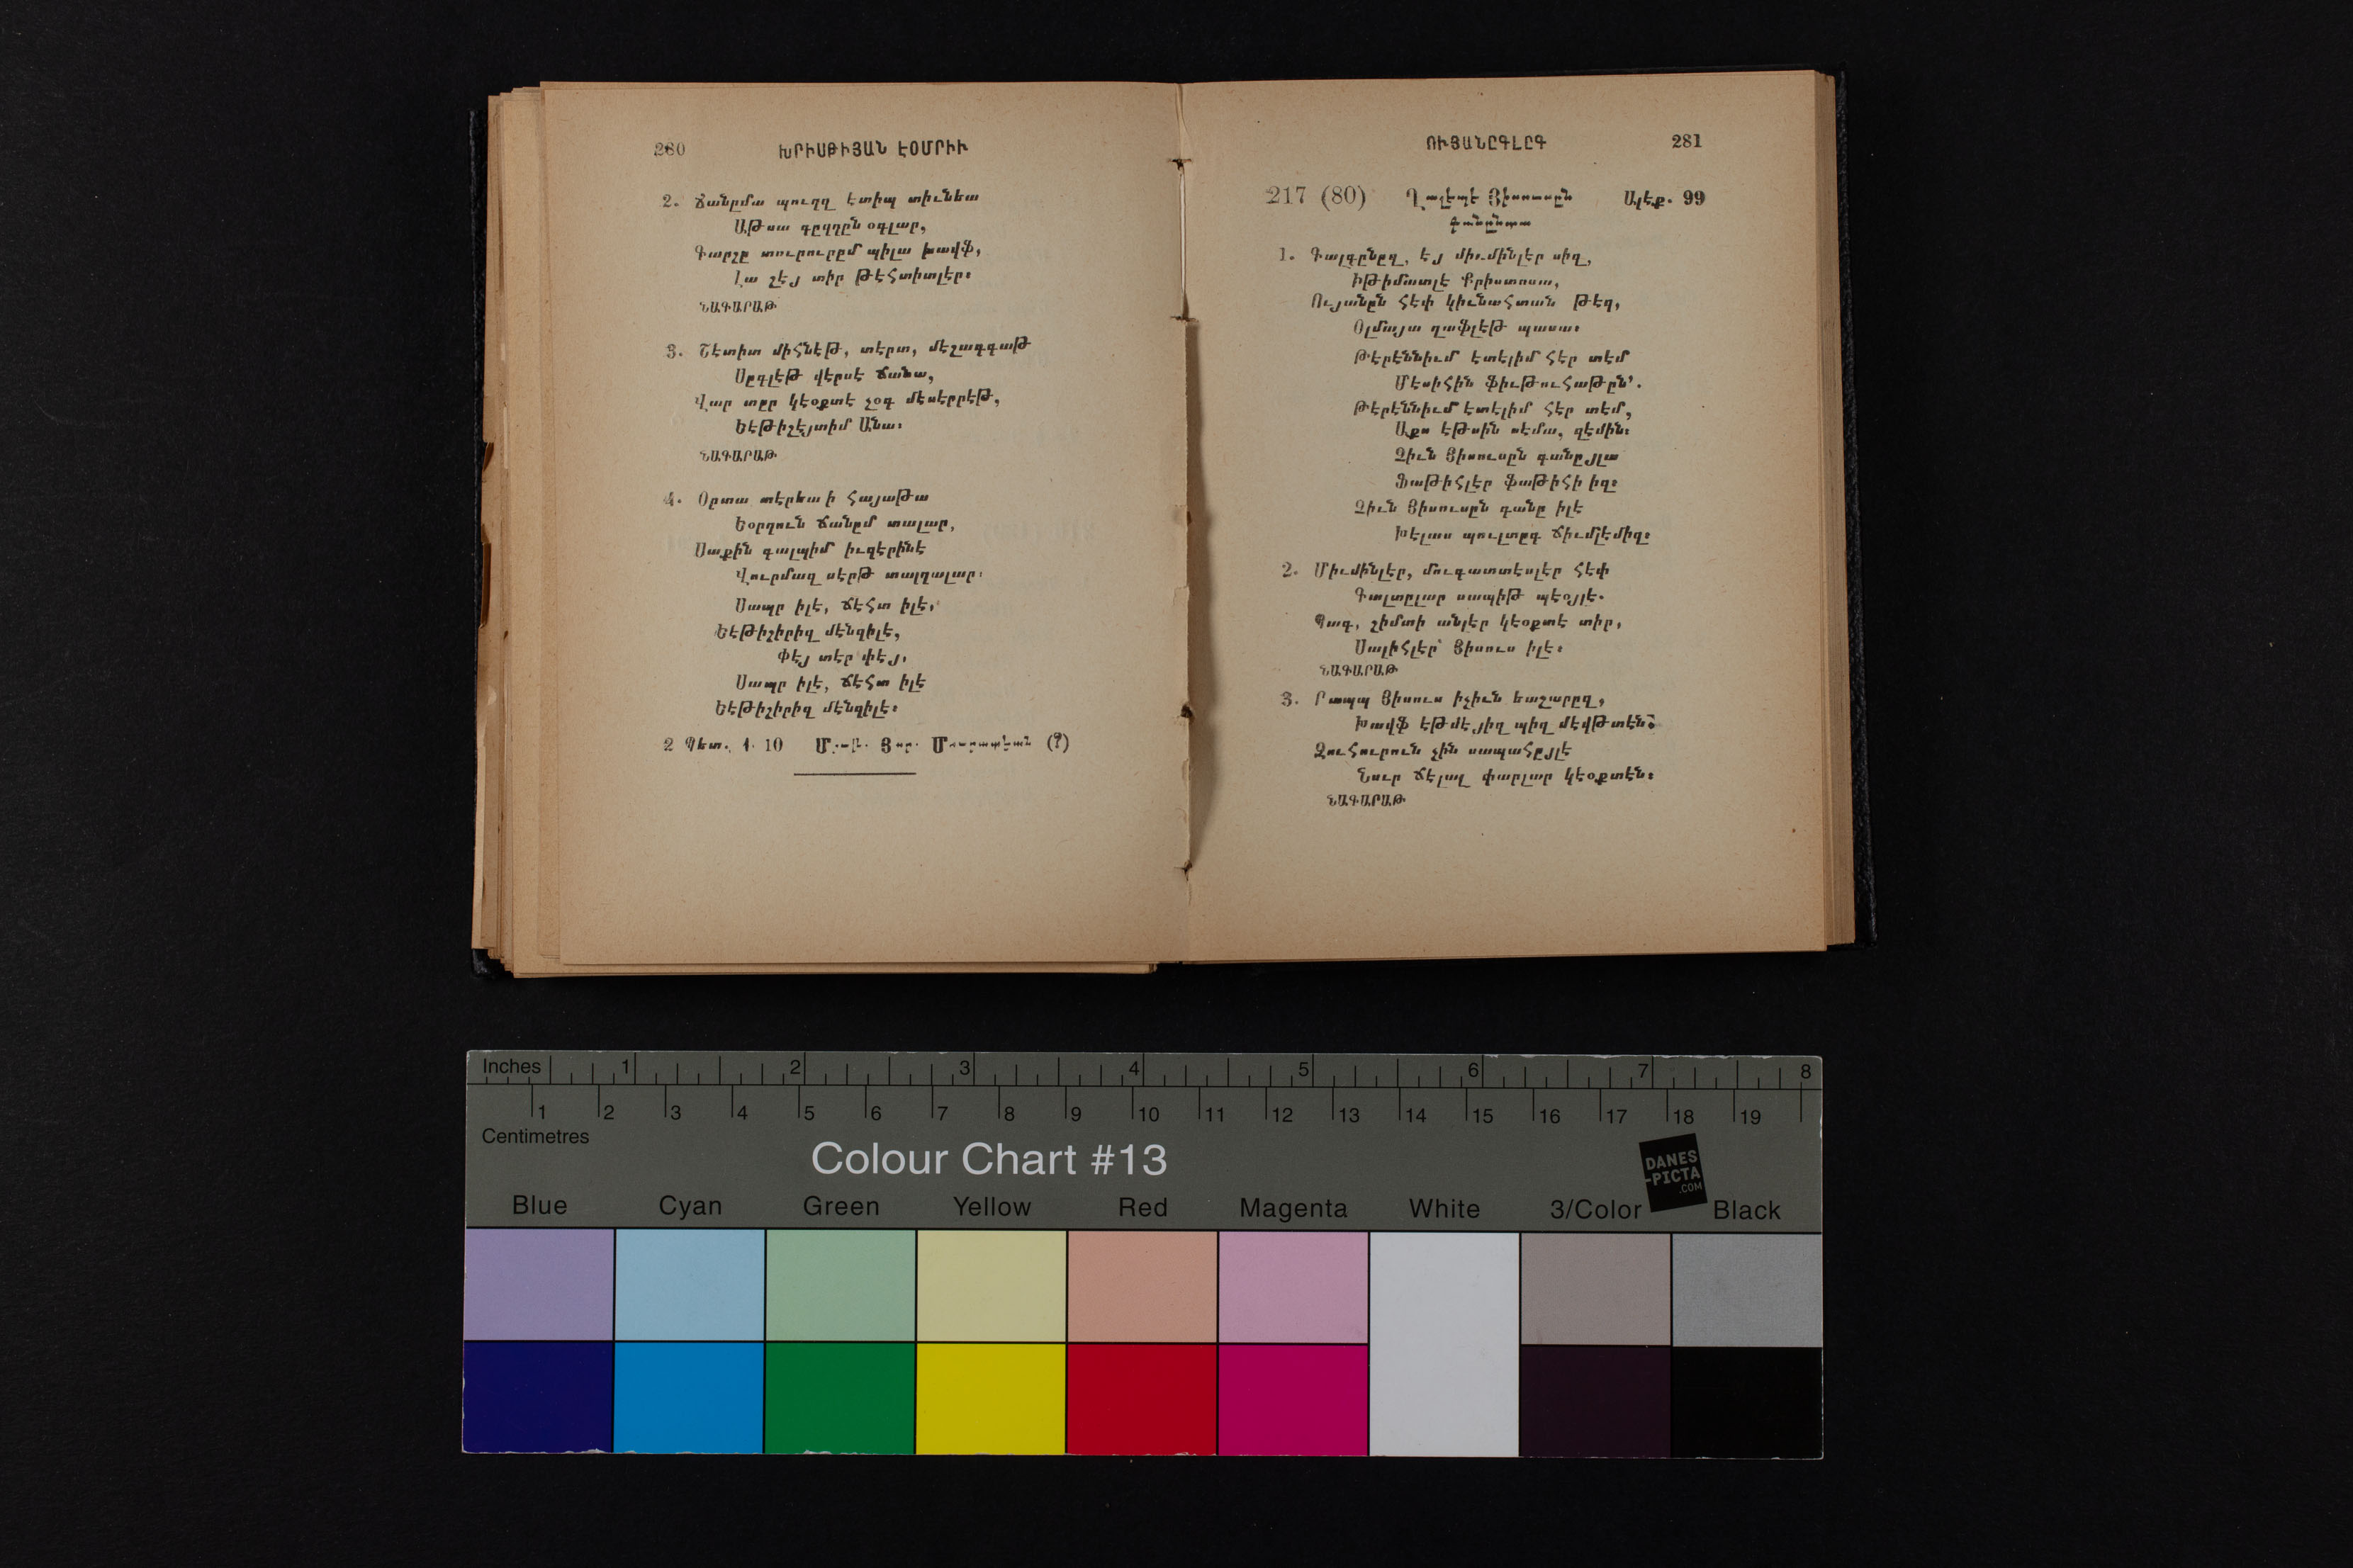 280 ԽՐԻՍԹԻՅԱՆ ԷՕՄՐԻՒ
2. Ճանըմա պուղզ էտիպ տիւնեա
Աթսա գըզղըն օգլար,
Գարշը տուրուրըմ պիլա խավֆ,
Նա չէյ տիր թէհտիտլէր։
ՆԱԳԱՐԱԹ
3. Շետիտ միհնէթ, տէրտ, մէշագգաթ
Սըգլէթ վէրսէ ճանա,
Վար տըր կէօքտէ չօգ մէսէրրէթ,
Եէթիշէյտիմ Անա։
ՆԱԳԱՐԱԹ
4. Օրտա տէրեա ի հայաթա
Եօրղուն ճանըմ տալար,
Սաքին գալպիմ իւզէրինէ
Վուրմազ սէրթ տալղալար։
Սապր իլէ, ճէհտ իլէ,
Եէթիշիրիզ մէնզիլէ,
Փէյ տէր փէյ,
Սապր իլէ, ճէհտ իլէ
Եէթիշիրիզ մէնզիլէ։
2 Պետ. 1. 10 (?)
ՈՒՅԱՆԸԳԼԸԳ 281
217 (80) Ղալէպէ Յիսուսըն Ալէք. 99
1. Գալգընըզ, էյ միւմինլէր սիզ,
Իթիմատլէ Քրիստոսա,
Ույանըն հէփ կիւնահտան թէզ,
Օլմայա ղաֆլէթ պասա։
Թէրէննիւմ էտէլիմ հէր տէմ
Մէսիհին ֆիւթուհաթըն՚.
Թէրէննիւմ էտէլիմ հէր տէմ,
Աքս էթսին սէմա, զէմին։
Զիւն Յիսուսըն գանըյլա
Ֆաթիհլէր ֆաթիհի իզ։
Զիւն Յիսուսըն գանը իլէ
Խէլաս պուլտըգ ճիւմլէմիզ։
2. Միւմինլէր, մուգատտէսլէր հէփ
Գալտըլար սապիթ պէօյլէ.
Պագ, շիմտի անլէր կէօքտէ տիր,
Սալիհլէր՝ Յիսուս իլէ։
ՆԱԳԱՐԱԹ
3. Րապպ Յիսուս իչիւն եաշարըզ,
Խավֆ էթմէյիզ պիզ մէվթտէն։
Զուհուրուն չին սապահըյլէ
Նուր ճէլալ փարլար կէօքտէն։
ՆԱԳԱՐԱԹ
Inches 1 2 3 4 5 6 7 8
1 2 3 4 5 6 7 8 9 10 11 12 13 14 15 16 17 18 19
Centimetres
Colour Chart #13
DANES
-PICTA
.COM
Blue Cyan Green Yellow Red Magenta White 3/Color Black